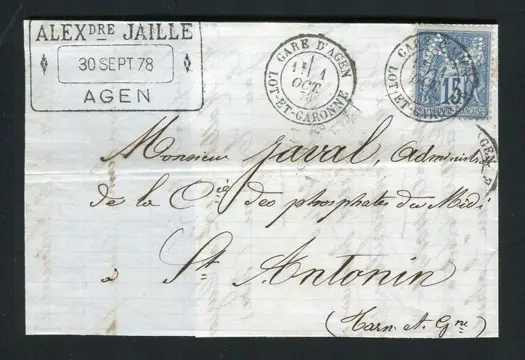 ALEXDRE JAILLE
30 SEPT 78
AGEN
GARE D'AGEN
1E 1
OCT.
78
LOT-ET-GARONNE
15
Monsieur Javal, Administr
de la Cie des phosphates du Midi
à St Antonin
(Tarn et Gne)